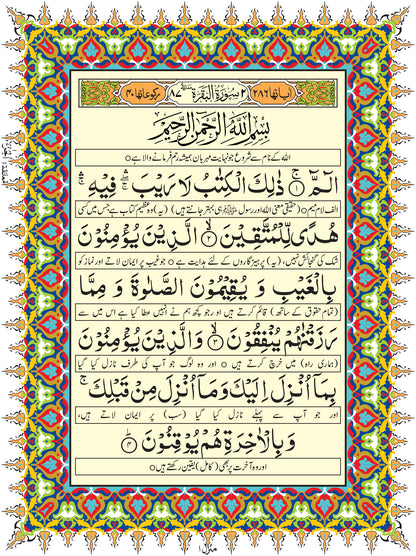 اٰیاتها ۲۸۶ ۲ سُوْرَةُ الْبَقَرَةِ ۸۷ رکوعاتها ۴۰
بِسْمِ اللّٰهِ الرَّحْمٰنِ الرَّحِیْمِ
اللہ کے نام سے شروع جو نہایت مہربان ہمیشہ رحم فرمانے والا ہے o
الٓمّٓ ۚ﴿۱﴾ ذٰلِكَ الْكِتٰبُ لَا رَیْبَ ۛۖ فِیْهِ ۛۚ
الف لام میم o (حقیقی معنی اللہ اور رسول ﷺ ہی بہتر جانتے ہیں) (یہ) وہ عظیم کتاب ہے جس میں کسی
هُدًی لِّلْمُتَّقِیْنَ ۙ﴿۲﴾ الَّذِیْنَ یُؤْمِنُوْنَ
شک کی گنجائش نہیں، (یہ) پرہیزگاروں کے لئے ہدایت ہے o جو غیب پر ایمان لاتے اور نماز کو
بِالْغَیْبِ وَ یُقِیْمُوْنَ الصَّلٰوةَ وَ مِمَّا
(تمام حقوق کے ساتھ) قائم کرتے ہیں اور جو کچھ ہم نے انہیں عطا کیا ہے اس میں سے
رَزَقْنٰهُمْ یُنْفِقُوْنَ ۙ﴿۳﴾ وَالَّذِیْنَ یُؤْمِنُوْنَ
(ہماری راہ) میں خرچ کرتے ہیں o اور وہ لوگ جو آپ کی طرف نازل کیا گیا
بِمَاۤ اُنْزِلَ اِلَیْكَ وَمَاۤ اُنْزِلَ مِنْ قَبْلِكَ ۚ
اور جو آپ سے پہلے نازل کیا گیا (سب) پر ایمان لاتے ہیں،
وَبِالْاٰخِرَةِ هُمْ یُوْقِنُوْنَ ؕ﴿۴﴾
اور وہ آخرت پر بھی (کامل) یقین رکھتے ہیں o
منزل ۱